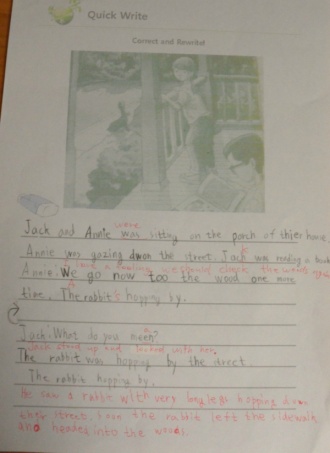 Quick Write
Correct and Rewrite!
were
Jack and Annie was sitting on the porch of thier home.
Annie was gazing dwon the street. Jack was reading a book
I have a feeling we should check the woods
Annie: We go now too the wood one more
time. The rabbit's hopping by.
Jack: What do you meen?
Jack stood up and looked with her.
The rabbit was hopping by the street.
The rabbit hopping by.
He saw a rabbit with very long legs hopping down
their street. Soon the rabbit left the sidewalk
and headed into the woods.